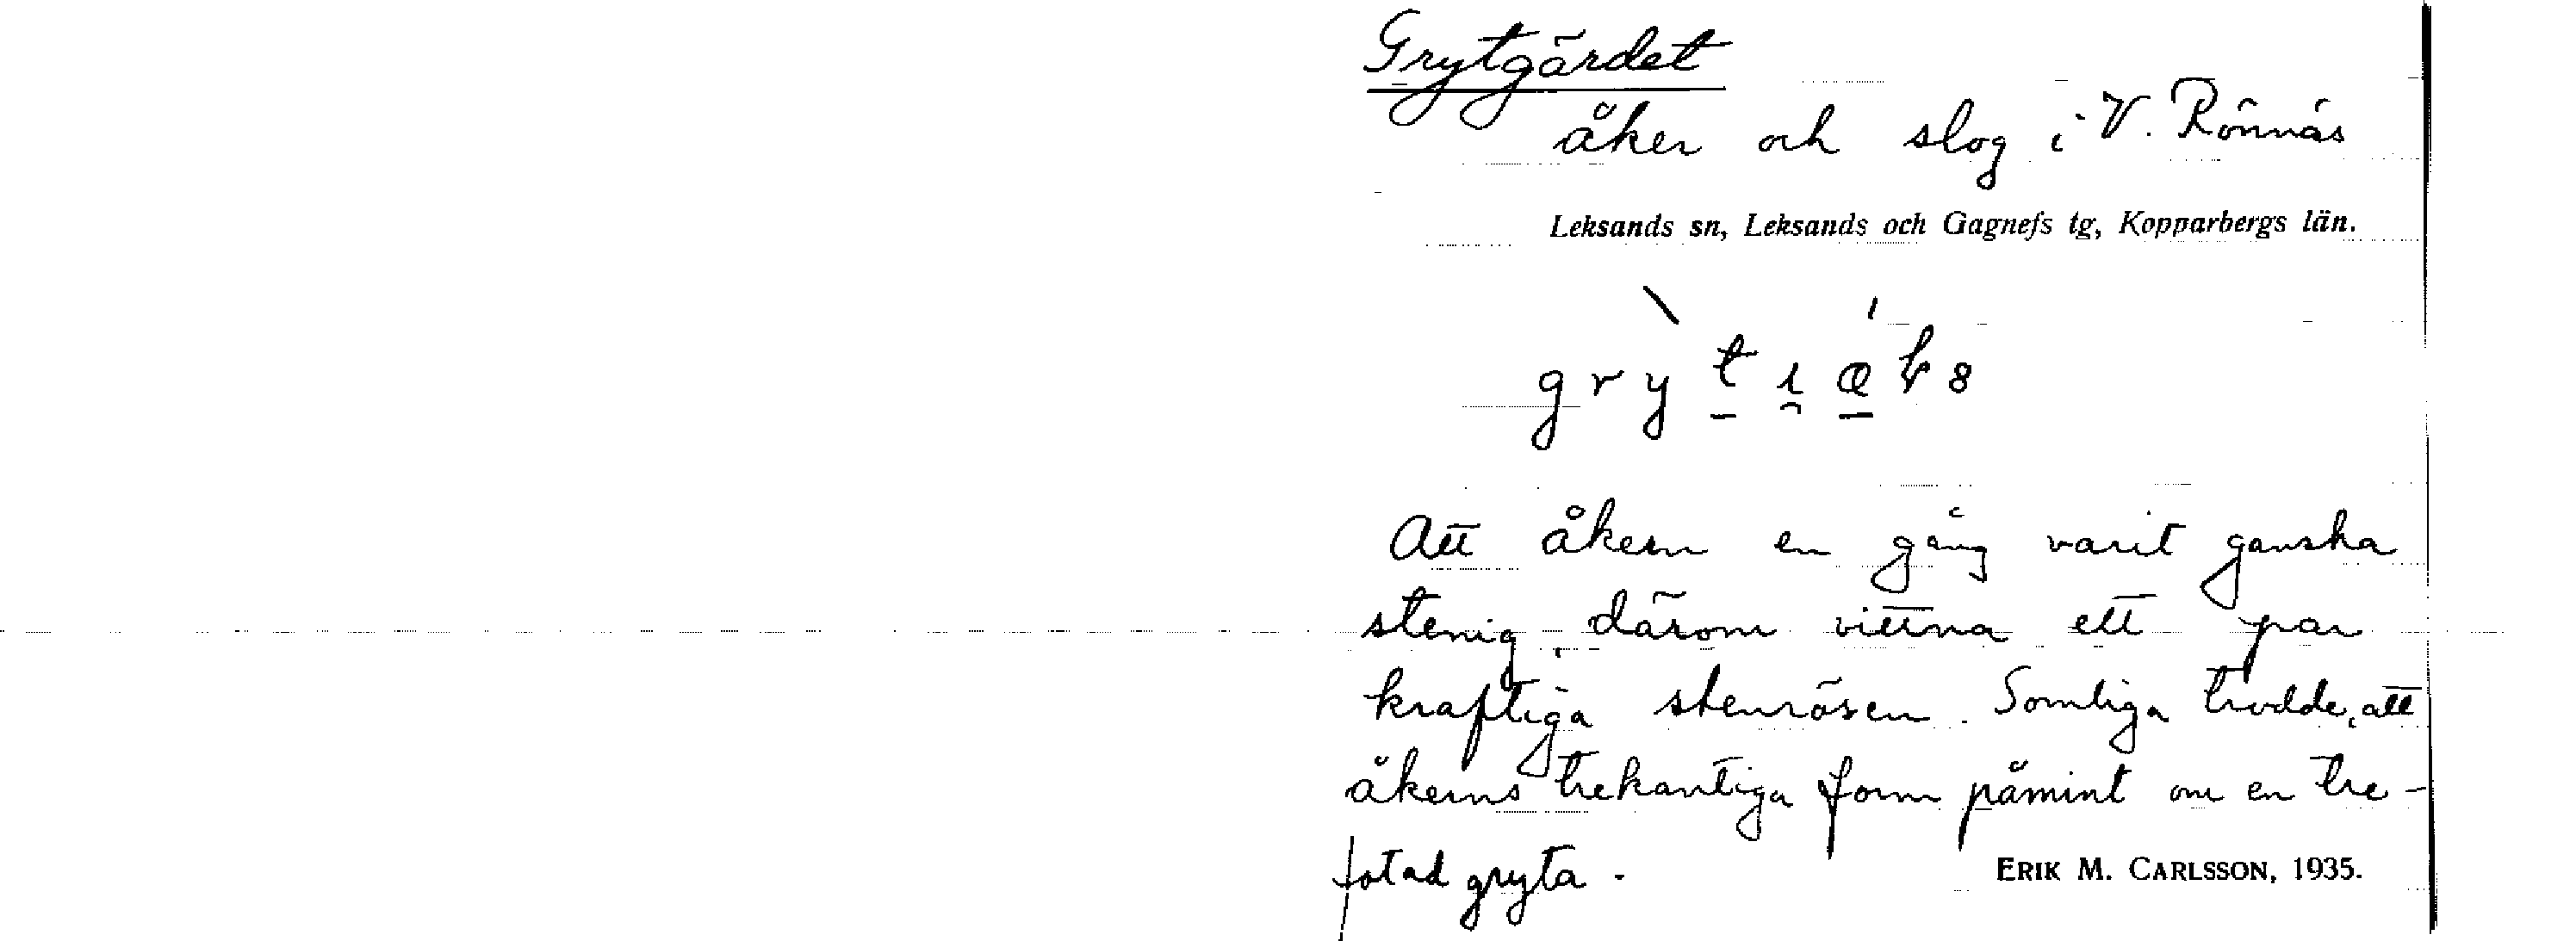 Grytgärdet
åker och slog i V. Rönnäs
Leksands sn, Leksands och Gagnefs tg, Kopparbergs län.
Att åkern en gång varit ganska
stenig, därom vittna ett par
kraftiga stenrösen. Somliga trodde, att
åkerns trekantiga form påmint om en tre-
fotad gryta.
ERIK M. CARLSSON, 1935.